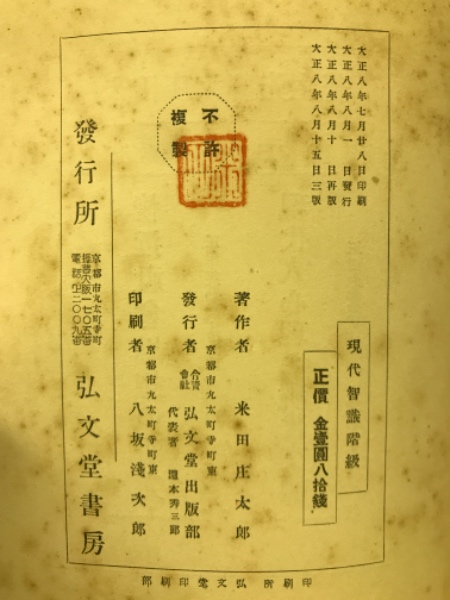 大正八年七月廿八日印刷
大正八年八月一日發行
大正八年八月十日再版
大正八年八月十五日三版
不許
複製
現代智識階級
正價 金壹圓八拾錢
著作者 米田庄太郎
京都市丸太町寺町東
發行者 合資會社 弘文堂出版部
代表者
京都市丸太町寺町東
印刷者 八坂淺次郎
發行所
京都市丸太町寺町
弘文堂書房
印刷所 弘文堂印刷部